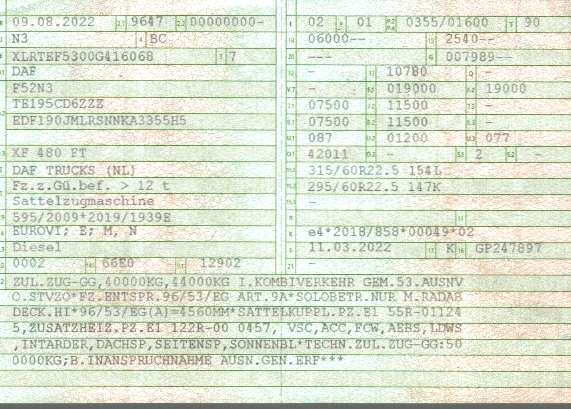 09.08.2022 9647 00000000-
N3 BC
XLRTEF5300G416068 7
DAF
F52N3
TE195CD6ZZZ
EDF190JMLRSNNKA3355H5
XF 480 FT
DAF TRUCKS (NL)
Fz.z.Gü.bef. > 12 t
Sattelzugmaschine
595/2009*2019/1939E
EUROVI; E; M, N
Diesel
0002 66E0 12902
02 01 0355/01600 90
06000-- 2540--
--- 007989--
- 10780 -
- 019000 19000
07500 11500 -
07500 11500 -
087 01200 077
42011 - 2 -
315/60R22.5 154L
295/60R22.5 147K
-
-
e4*2018/858*00049*02
11.03.2022 K GP247897
-
ZUL.ZUG-GG,40000KG,44000KG I.KOMBIVERKEHR GEM.53.AUSNV
O.STVZO*FZ.ENTSPR.96/53/EG ART.9A*SOLOBETR.NUR M.RADAB
DECK.HI*96/53/EG(A)=4560MM*SATTELKUPPL.PZ.E1 55R-01124
5,ZUSATZHEIZ.PZ.E1 122R-00 0457, VSC,ACC,FCW,AEBS,LDWS
,INTARDER,DACHSP,SEITENSP,SONNENBL*TECHN.ZUL.ZUG-GG:50
0000KG;B.INANSPRUCHNAHME AUSN.GEN.ERF***